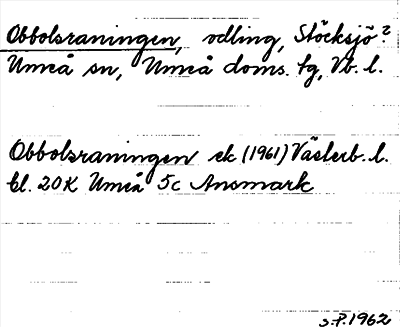 Obbolsraningen, odling, Stöcksjö ²
Umeå sn, Umeå doms. tg, Vb. l.
Obbolsraningen ek (1961) Västerb. l.
bl. 20K Umeå 5c Ansmark
S.P. 1962